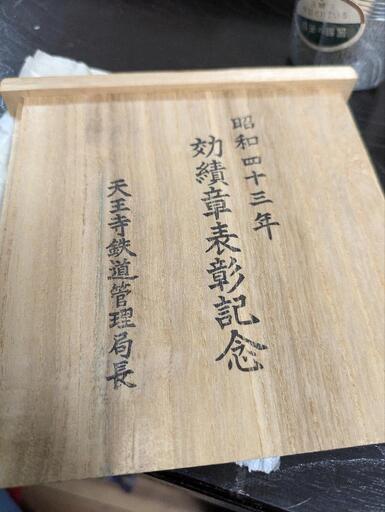 昭和四十三年
効績章表彰記念
天王寺鉄道管理局長